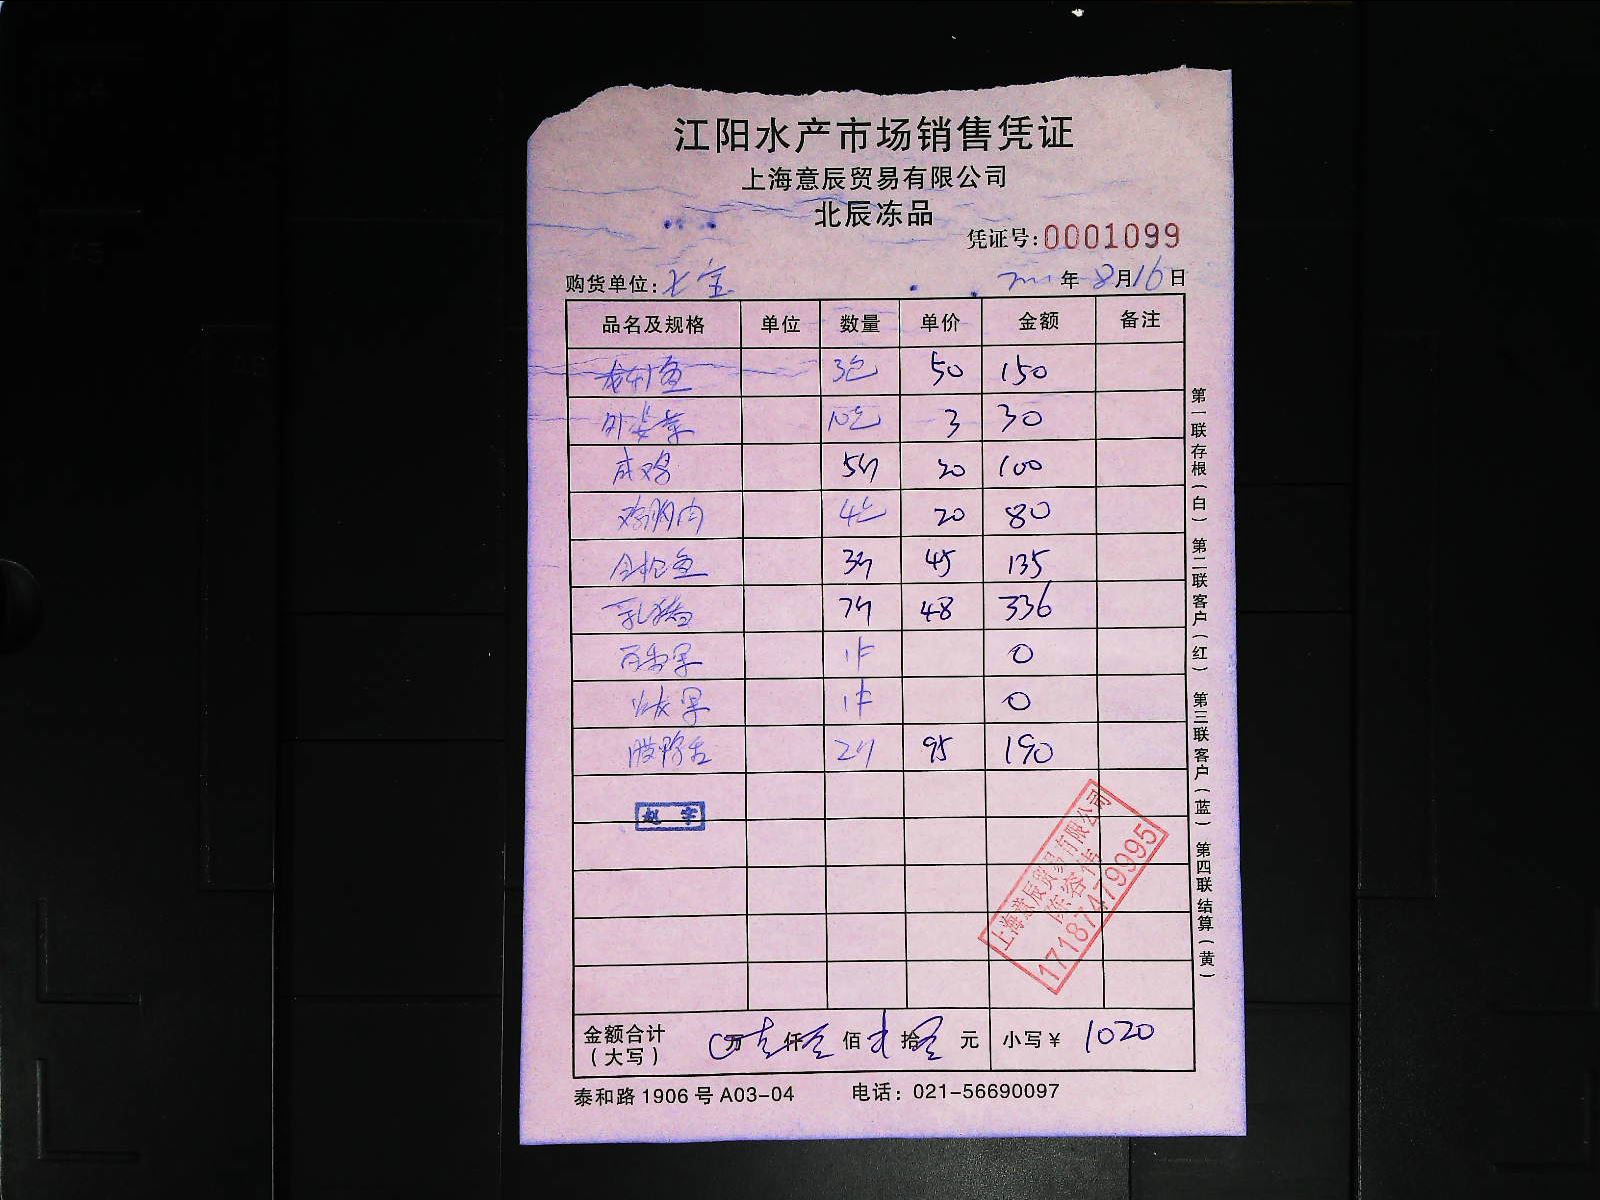 江阳水产市场销售凭证
上海意辰贸易有限公司
北辰冻品
凭证号:0001099
购货单位:七宝 年8月16日
品名及规格 单位 数量 单价 金额 备注
龙利鱼 3包 50 150
外婆菜 10包 3 30
咸鸡 5 20 100
鸡胸肉 4 20 80
金枪鱼 3 45 135
乳猪 7 48 336
百香果 1件 0
火龙果 1件 0
鸭舌 2 95 190
赵宇
上海意辰贸易有限公司
17187479995
金额合计(大写) 万壹仟零佰贰拾零元 小写¥ 1020
泰和路1906号A03-04 电话:021-56690097
第一联存根(白) 第二联客户(红) 第三联客户(蓝) 第四联结算(黄)